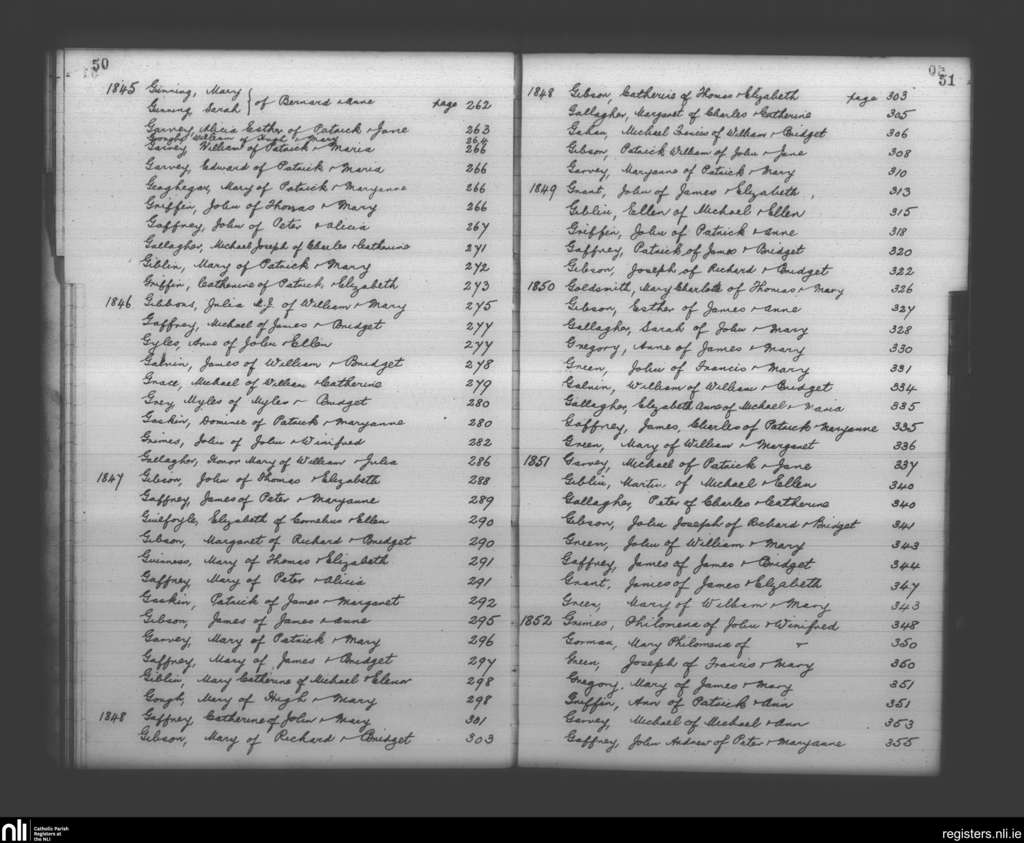 50
1845 Ginning, Mary
Ginning Sarah } of Bernard & Anne page 262
Garvey, Alicia Esther of Patrick & Jane 263
Gough, William of & Mary 264
Garvey William of Patrick & Maria 266
Garvey, Edward of Patrick & Maria 266
Geoghegan, Mary of Patrick & Maryanne 266
Griffin, John of Thomas & Mary 266
Gaffney, John of Peter & Alicia 267
Gallagher, Michael Joseph of Charles & Catherine 271
Giblin, Mary of Patrick & Mary 272
Griffin, Catherine of Patrick & Elizabeth 273
1846 Gibbons, Julia M.J. of William & Mary 275
Gaffney, Michael of James & Bridget 277
Gyles, Anne of John & Ellen 277
Galvin, James of William & Bridget 278
Grace, Michael of William & Catherine 279
Grey, Myles of Myles & Bridget 280
Gaskin, Dominic of Patrick & Maryanne 280
Grimes, John of John & Winifred 282
Gallagher, Honor Mary of William & Julia 286
1847 Gibson, John of Thomas & Elizabeth 288
Gaffney, James of Peter & Maryanne 289
Guilfoyle, Elizabeth of Cornelius & Ellen 290
Gibson, Margaret of Richard & Bridget 290
Guinness, Mary of Thomas & Elizabeth 291
Gaffney Mary of Peter & Alicia 291
Gaskin, Patrick of James & Margaret 292
Gibson, James of James & Anne 295
Garvey, Mary of Patrick & Mary 296
Gaffney, Mary of James & Bridget 297
Giblin, Mary Catherine of Michael & Elenor 298
Gough, Mary of Hugh & Mary 298
1848 Gaffney, Catherine of John & Mary 301
Gibson, Mary of Richard & Bridget 303
51
1848 Gibson, Catherine of Thomas & Elizabeth page 303
Gallagher, Margaret of Charles & Catherine 305
Gahan, Michael Francis of William & Bridget 306
Gibson, Patrick William of John & Jane 308
Garvey, Maryanne of Patrick & Mary 310
1849 Grant, John of James & Elizabeth 313
Giblin, Ellen of Michael & Ellen 315
Griffin, John of Patrick & Anne 318
Gaffney, Patrick of James & Bridget 320
Gibson, Joseph of Richard & Bridget 322
1850 Goldsmith, Mary Charlotte of Thomas & Mary 326
Gibson, Esther of James & Anne 327
Gallagher, Sarah of John & Mary 328
Gregory, Anne of James & Mary 330
Green, John of Francis & Mary 331
Galvin, William of William & Bridget 334
Gallagher, Elizabeth Anne of Michael & Maria 335
Gaffney, James, Charles of Patrick & Maryanne 335
Green, Mary of William & Margaret 336
1851 Garvey, Michael of Patrick & Jane 337
Giblin, Martin of Michael & Ellen 340
Gallagher, Peter of Charles & Catherine 340
Gibson, John Joseph of Richard & Bridget 341
Green, John of William & Mary 343
Gaffney, James of James & Bridget 344
Grant, James of James & Elizabeth 347
Green, Mary of William & Mary 343
1852 Grimes, Philomena of John & Winifred 348
Gorman, Mary Philomena of & 350
Green, Joseph of Francis & Mary 350
Gregory, Mary of James & Mary 351
Griffin, Ann of Patrick & Ann 351
Garvey, Michael of Michael & Ann 353
Gaffney, John Andrew of Peter & Maryanne 355
nli Catholic Parish
Registers at
the NLI
registers.nli.ie